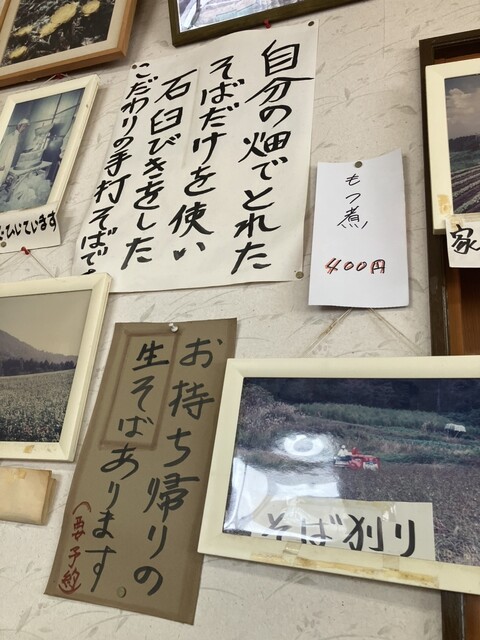 自分の畑でとれた
そばだけを使い
石臼びきをした
こだわりの手打そばです
もつ煮
400円
ひいています
家
お持ち帰りの
生そばあります
(要予約)
そば刈り